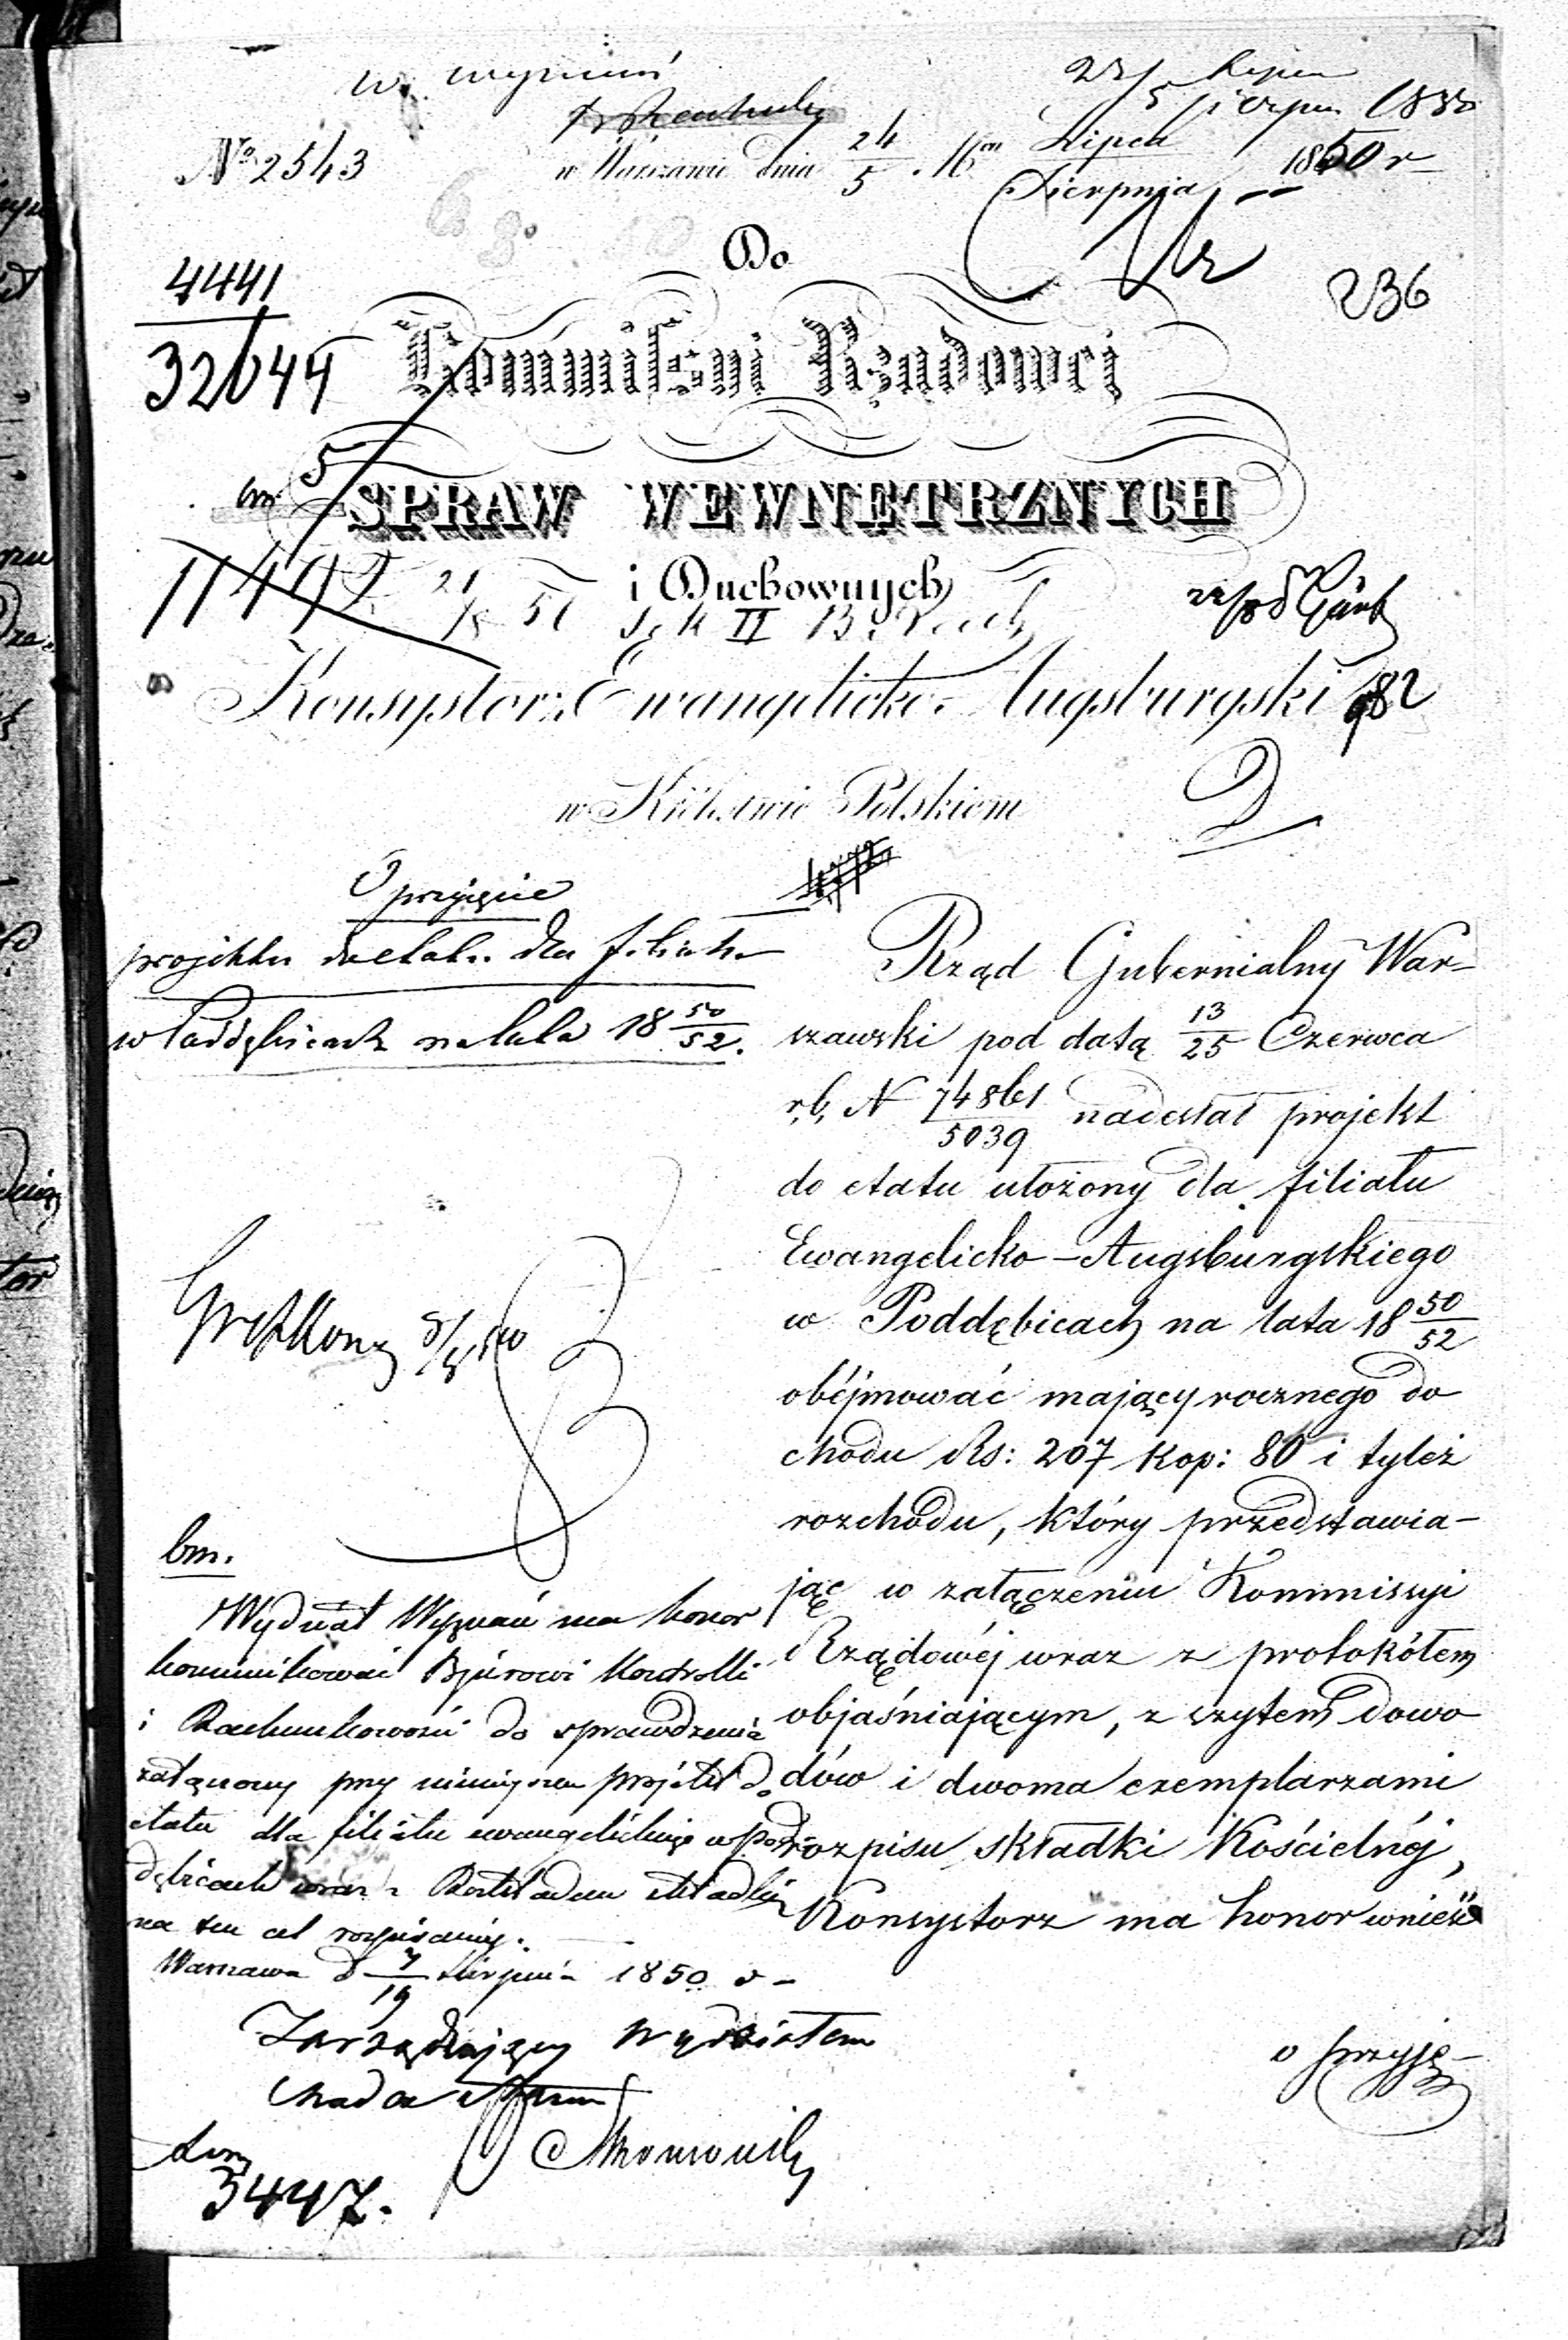 w. wyznań
24/5 Lipca
Sierpn 1850
No 2543
w Warszawie dnia 24/5 Lipca/Sierpnia 1850 r
Do
236
4441
32644
Kommissyi Rządowej
SPRAW WEWNĘTRZNYCH
bm 5
i Duchownych
11492 21 51 II
Konsystorz Ewangelicko-Augsburgski
982
w Królestwie Polskiem
O przyjęcie
projektu do etatu dla filiału
w Poddębicach na lata 18 50/52.
Rząd Gubernialny War-
szawski pod datą 13/25 Czerwca
r.b. N 74861/5039 nadesłał projekt
do etatu ułożony dla filiału
Ewangelicko-Augsburgskiego
w Poddębicach na lata 18 50/52
obéjmować mający rocznego do
chodu Rs: 207 kop: 80 i tyleż
rozchodu, który przedstawia-
jąc w załączeniu Kommissyi
Rządowéj wraz z protokółem
objaśniającym, z szytem dowo
dów i dwoma exemplarzami
rozpisu składki Kościelnéj,
Konsystorz ma honor wnieść
o przyję-
bm.
Wydział Wyznań ma honor
kommunikować Bjurowi Kontrolli
i Rachunkowości do sprawdzenia
załączony przy niniejszem projekt do
etatu dla filiału ewangelickiego w Pod-
dębicach wraz z Rozkładem składki
na ten cel rozpisanéj.
Warszawa d 7/19 Sierpnia 1850 r
Zarządzający Wydziałem
Radca Stanu
3447.